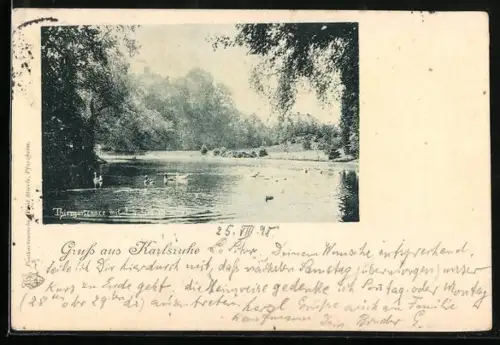 Thiergartensee mit
25. VIII. 98.
Gruß aus Karlsruhe L. Schw. Deinem Wunsche entsprechend,
teile ich Dir hierdurch mit, daß nächsten Samstag (übermorgen) unser
Kurs zu Ende geht, die Heimreise gedenke ich Sonntag oder Montag
(28ten oder 29ten ds) anzutreten herzl. Grüße auch an Familie
Dein Bruder G.